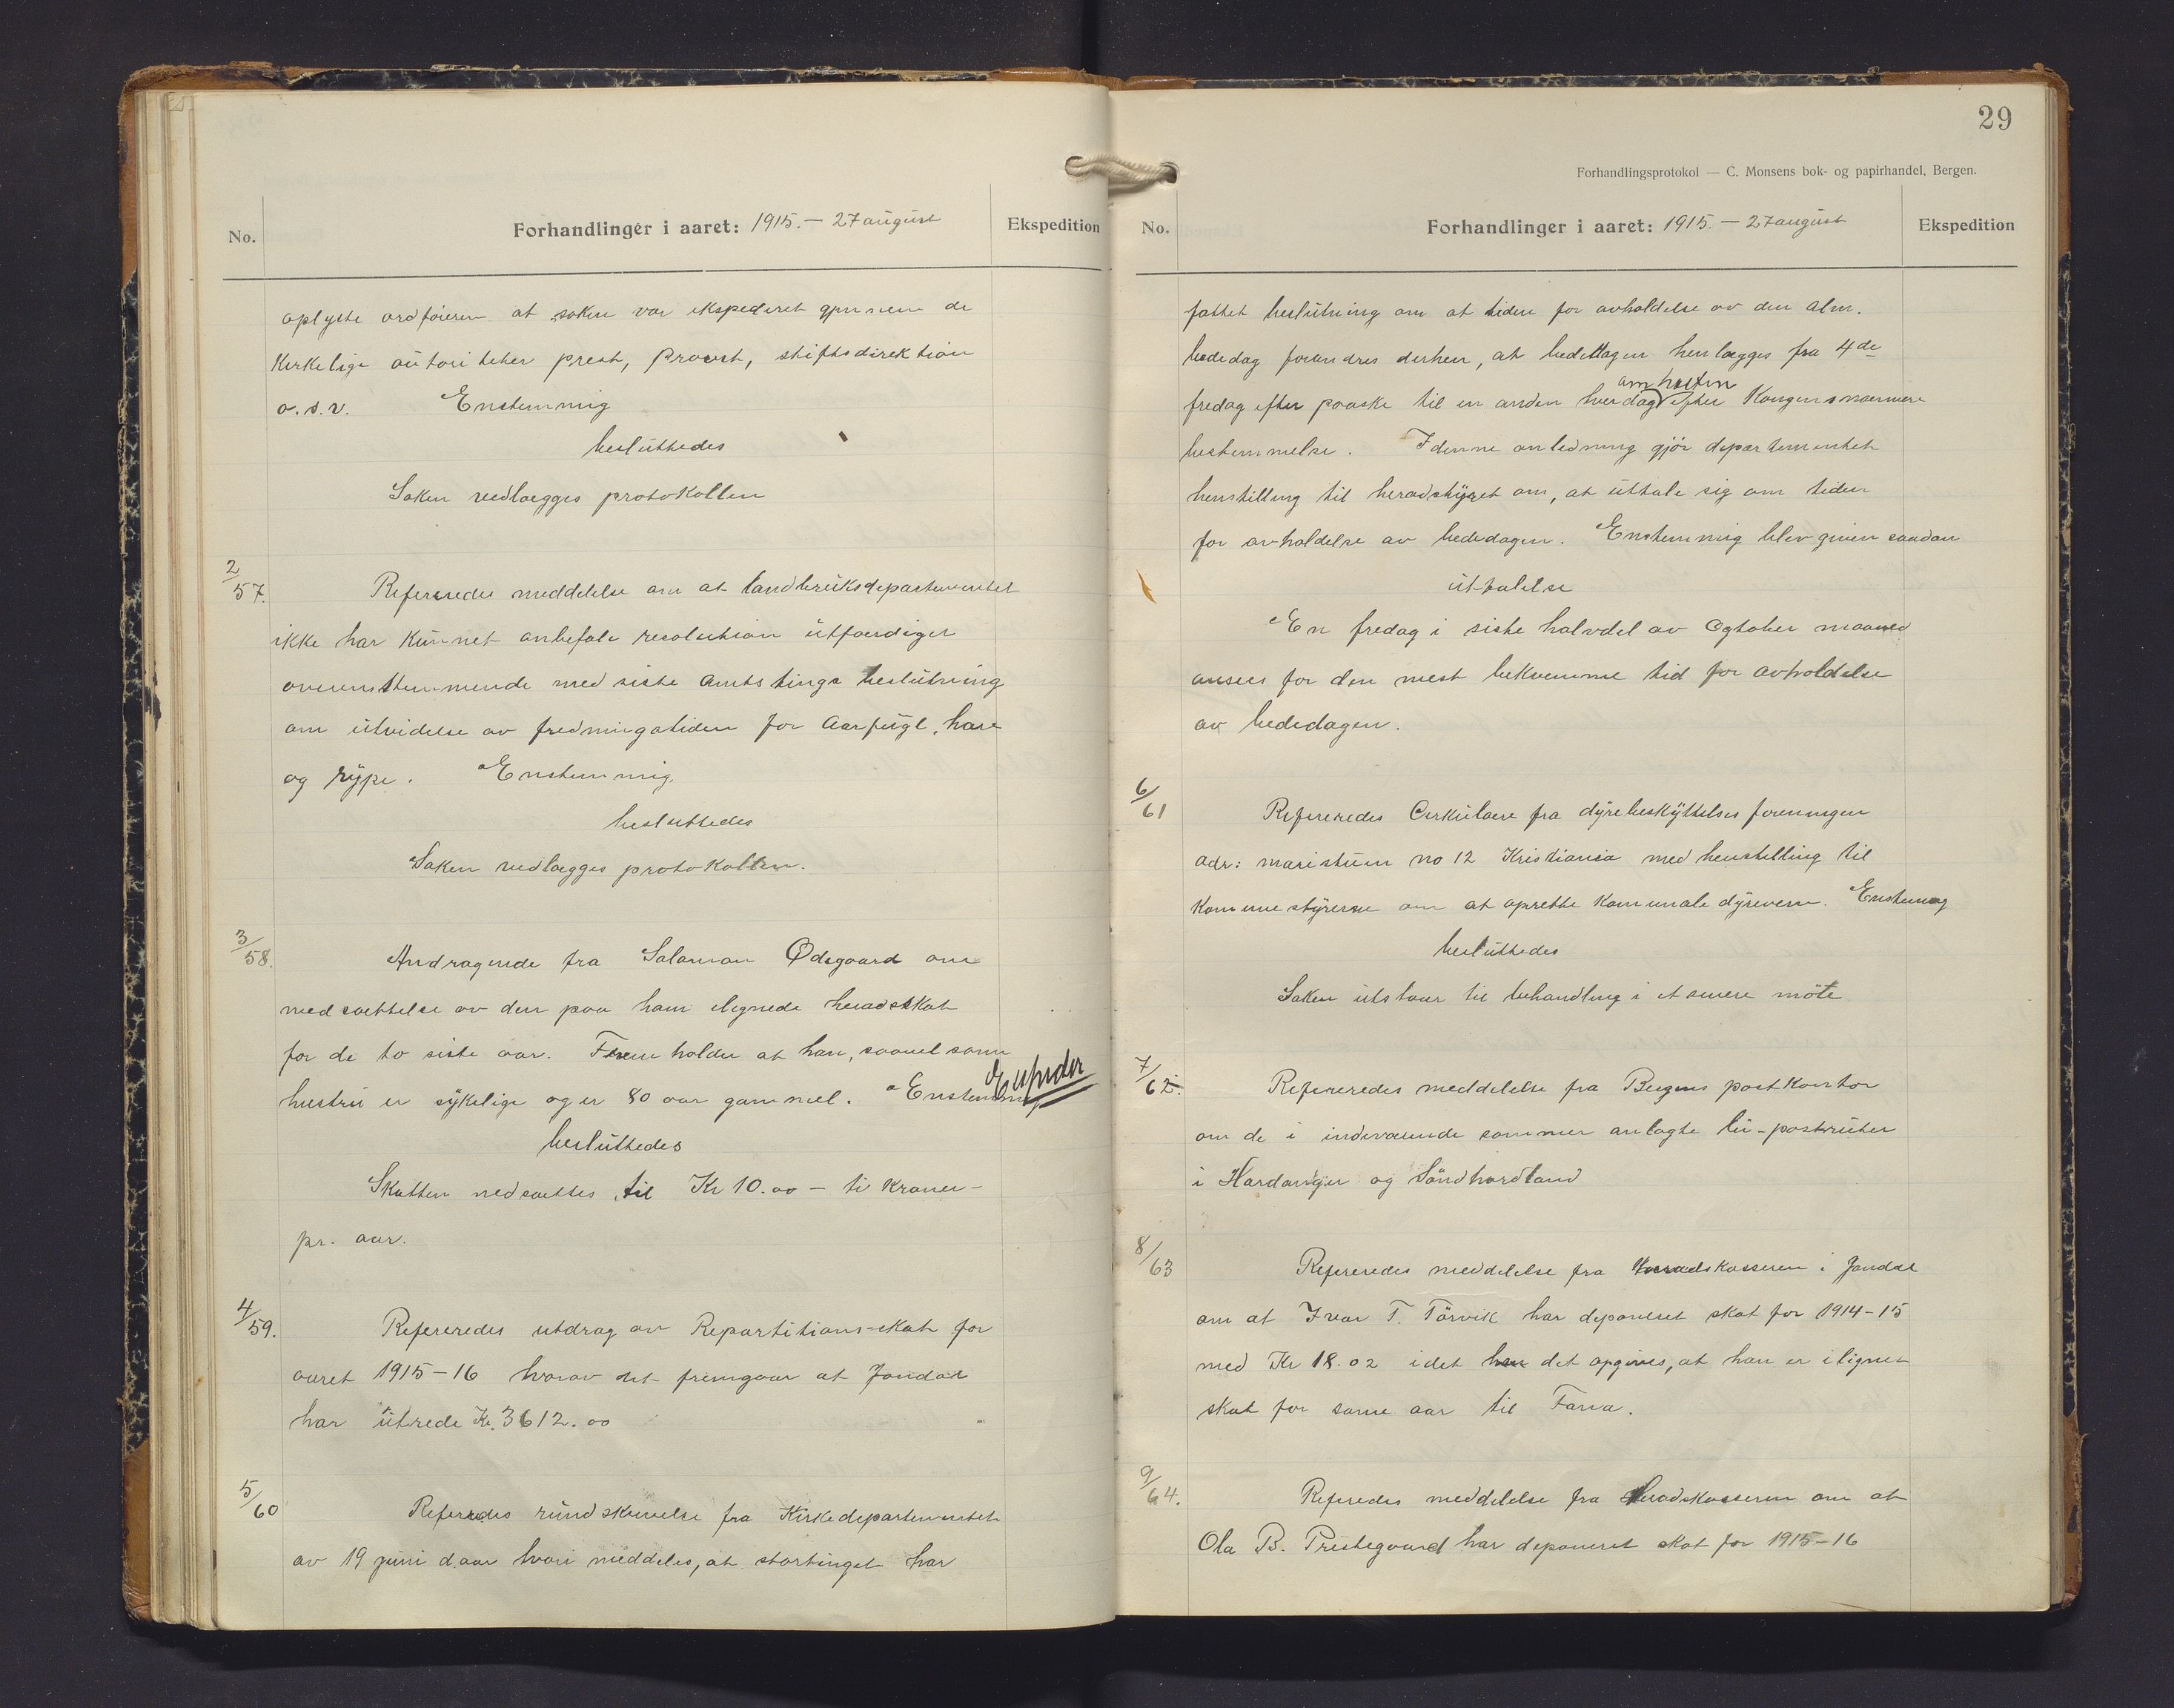 No.
Forhandlinger i aaret: 1915. – 27 august
Ekspedition
oplyste ordføieren at saken var ekspederet gjennem de
kirkelige autoriteter prest, Provst, stiftsdirektion
o.s.v. Enstemmig
besluttedes
Saken vedlægges protokollen
2/57. Refereredes meddelelse om at landbruksdepartementet
ikke har kunnet anbefale resolution utfærdiget
overensstemmende med siste amtstings beslutning
om utvidelse av fredningstiden for Aarfugl, hare
og rype. Enstemmig
besluttedes
Saken vedlægges protokollen.
3/58. Andragende fra Salamon Ødegaard om
nedsættelse av den paa ham ilignede heradskat
for de to siste aar. Fremholder at han, saavel som
hustru er sykelige og er 80 aar gammel. Enstemmig
besluttedes
Skatten nedsættes til Kr 10.00 – ti kroner –
pr. aar.
4/59. Refereredes utdrag av Repartitions-skat for
aaret 1915–16 hvorav det fremgaar at Jondal
har utrede Kr. 3612.00
5/60 Refereredes rundskrivelse fra Kirkedepartementet
av 19 juni d.aar hvori meddeles, at stortinget har
29
Forhandlingsprotokol — C. Monsens bok- og papirhandel, Bergen.
No.
Forhandlinger i aaret: 1915. – 27 august
Ekspedition
fattet beslutning om at tiden for avholdelse av den alm.
bededag forandres derhen, at bededagen henlægges fra 4de
om høsten
fredag efter paaske til en anden hverdag efter Kongens nærmere
bestemmelse. I denne anledning gjør departementet
henstilling til heradstyret om, at uttale sig om tiden
for avholdelse av bededagen. Enstemmig blev given saadan
uttalelse
En fredag i siste halvdel av Ogtober maaned
ansees for den mest bekvemme tid for avholdelse
av bededagen.
6/61 Refereredes Cirkulære fra dyrebeskyttelses foreningen
adr: maristuen no 12 Kristiania med henstilling til
Kommunestyrerne om at oprette kommunale dyrevern. Enstemmig
besluttedes
Saken utstaar til behandling i et senere møte
7/62. Refereredes meddelelse fra Bergens postkontor
om de i indeværende sommer anlagte bu-postruter
i Hardanger og Søndhordland
8/63 Refereredes meddelelse fra heradskasseren i Jondal
om at Ivar T. Tørvik har deponeret skat for 1914–15
med Kr 18.02 idet det opgives, at han er ilignet
skat for same aar til Fana.
9/64. Referedes meddelelse fra heradskasseren om at
Ola B. Prestegaard har deponeret skat for 1915–16